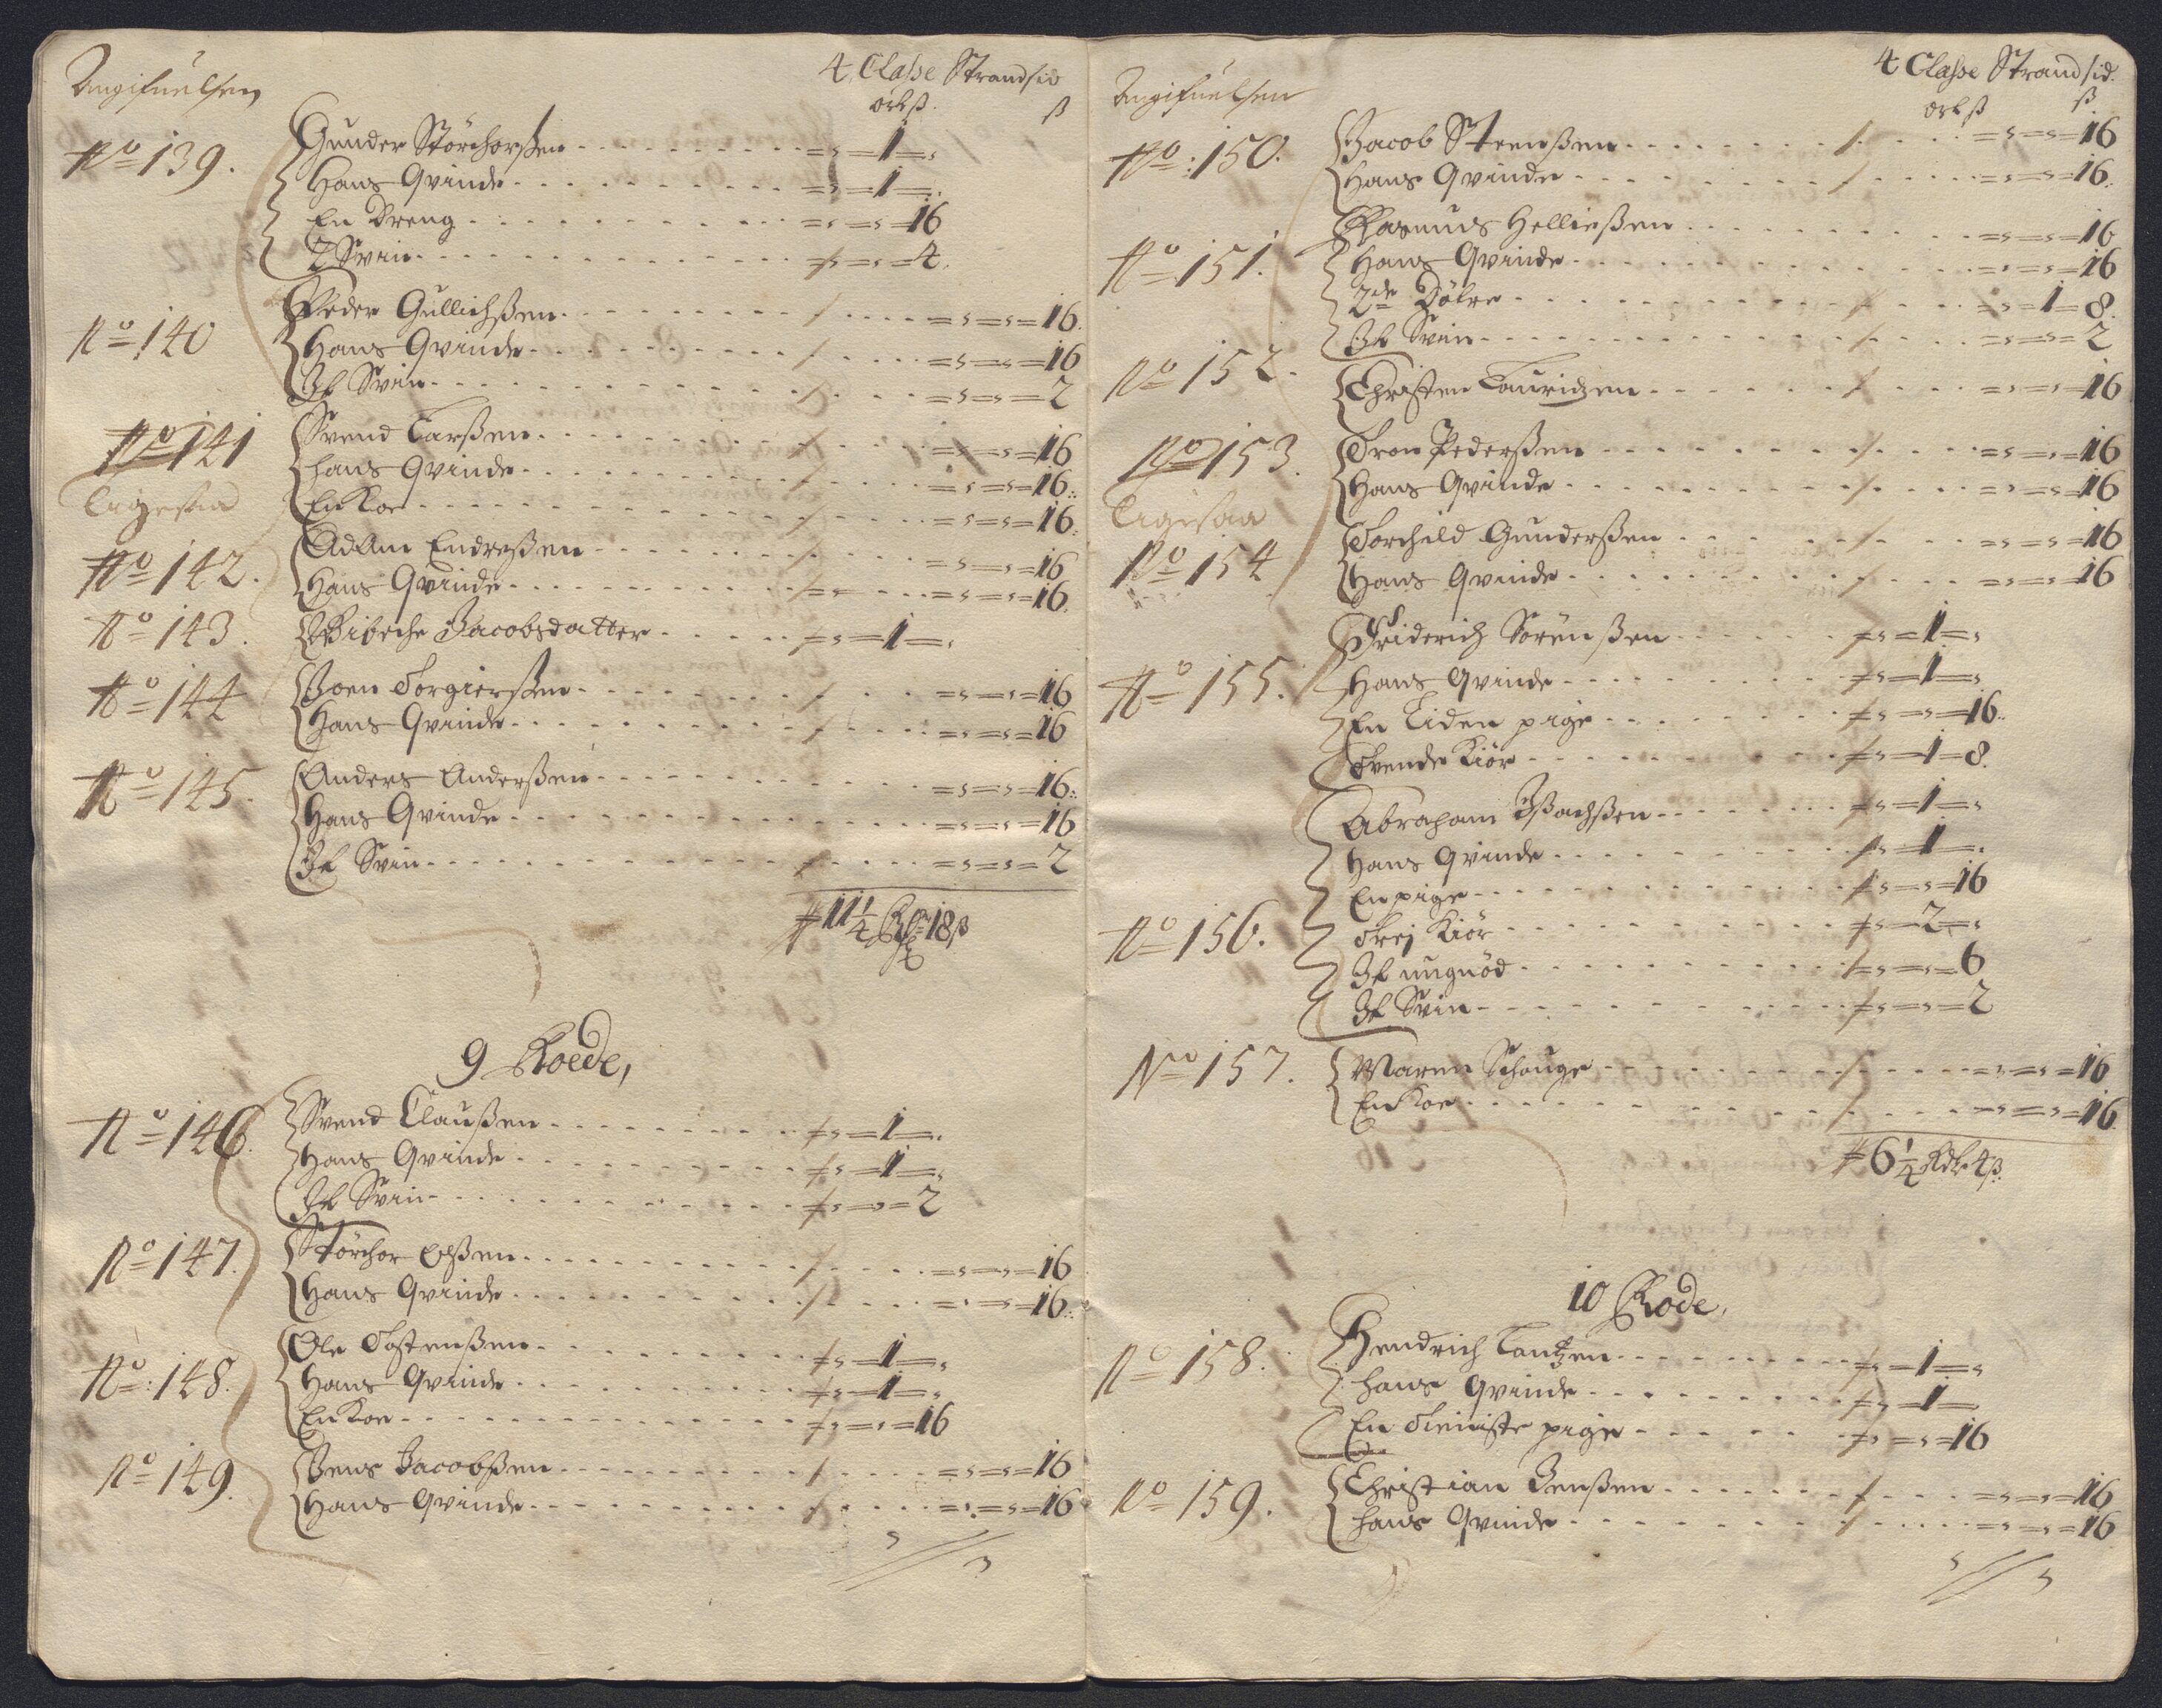 Angifuelsen
4 Classe Strandsid
ort ß. ß
No 139. Gunder Störchorßen - - - = s = 1 = s
Hans Qvinde - - - = s = 1 = s
En Dreng - - - = s = s = 16
2 Svin - - - = s = s = 4.
No 140 Peder Gullichßen - - - = s = s = 16.
Hans Qvinde - - - = s = s = 16
Jt Svin - - - = s = s = 2
No 141 Svend Larßen - - - = s = s = 16
hans Qvinde - - - = s = s = 16:
En Koe - - - = s = s = 16.
No 142. Adam Endreßen - - - = s = s = 16
Hans Qvinde - - - = s = s = 16.
No 143. Wibeche Jacobsdatter - - - = s = 1 = s
No 144 Joen Torgierßen - - - = s = s = 16
Hans Qvinde - - - = s = s = 16
No 145. Anders Anderßen - - - = s = s = 16:
Hans Qvinde - - - = s = s = 16
Jt Svin - - - = s = s = 2
11 1/4 Rdr 18 ß
9 Roede,
No 146. Svend Claußen - - - = s = 1 = s
Hans Qvinde - - - = s = 1 = s
Jt Svin - - - = s = s = 2
No 147. Störchor Olßen - - - = s = s = 16
Hans Qvinde - - - = s = s = 16:
No: 148. Ole Tostenßen - - - = s = 1 = s
Hans Qvinde - - - = s = 1 = s
En Koe - - - = s = s = 16
No 149. Jens Jacobßen - - - = s = s = 16
Hans Qvinde - - - = s = s = 16
Angifuelsen
4 Classe Strandsid.
ort ß ß
No: 150. Jacob Steenßen - - - = s = s = 16
Hans Qvinde - - - = s = s = 16.
No 151. Rasmus Helließen - - - = s = s = 16
Hans Qvinde - - - = s = s = 16
2de - - - = s = 1 = 8.
Jt Svin - - - = s = s = 2
No 152. Christen Lauridzen - - - = s = s = 16
No 153. Tron Pederßen - - - = s = s = 16
Hans Qvinde - - - = s = s = 16
No 154 Torchild Gunderßen - - - = s = s = 16
Hans Qvinde - - - = s = s = 16
No 155. Friderich Sörenßen - - - = s = 1 = s
Hans Qvinde - - - = s = 1 = s
En Liden pige - - - = s = s = 16.
Tvende Kiör - - - = s = 1 = 8.
No 156. Abraham Ißachßen - - - = s = 1 = s
Hans Qvinde - - - = s = 1 = s
En pige - - - = s = s = 16
Trej Kiör - - - = s = 2 = s
Jt ungnöd - - - = s = s = 6
Jt Svin - - - = s = s = 2
No 157. Maren Schouge - - - = s = s = 16
En Koe - - - = s = s = 16.
6 1/4 Rdr 4 ß
10 Rode,
No 158. Hendrich Lantzen - - - = s = 1 = s
hans Qvinde - - - = s = 1 =
En Tieniste pige - - - = s = s = 16
No 159. Christian Jenßen - - - = s = s = 16
hans Qvinde - - - = s = s = 16